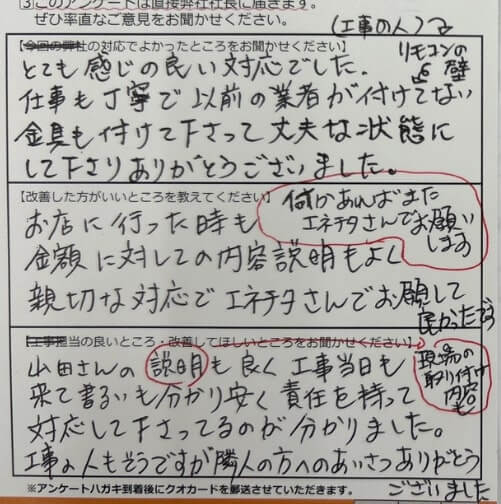 ③このアンケートは直接弊社社長に届きます。
ぜひ率直なご意見をお聞かせください。
(工事の人)
【今回の弊社の対応でよかったところをお聞かせください】
リモコンの
壁
とても感じの良い対応でした.
仕事も丁寧で以前の業者が付けてない
金具も付けて下さって丈夫な状態に
して下さりありがとうございました。
【改善した方がいいところを教えてください】
何かあればまた
エネチタさんでお願い
します
お店に行った時も
金額に対しての内容説明もよく
親切な対応でエネチタさんでお願して
良かったです
【工事担当の良いところ・改善してほしいところをお聞かせください】
現場の
取り付け
内容
も
山田さんの説明も良く工事当日も
来て書るいも分かり安く責任を持って
対応して下さってるのが分かりました。
工事の人もそうですが隣人の方へのあいさつありがとう
ございました
※アンケートハガキ到着後にクオカードを郵送させていただきます。